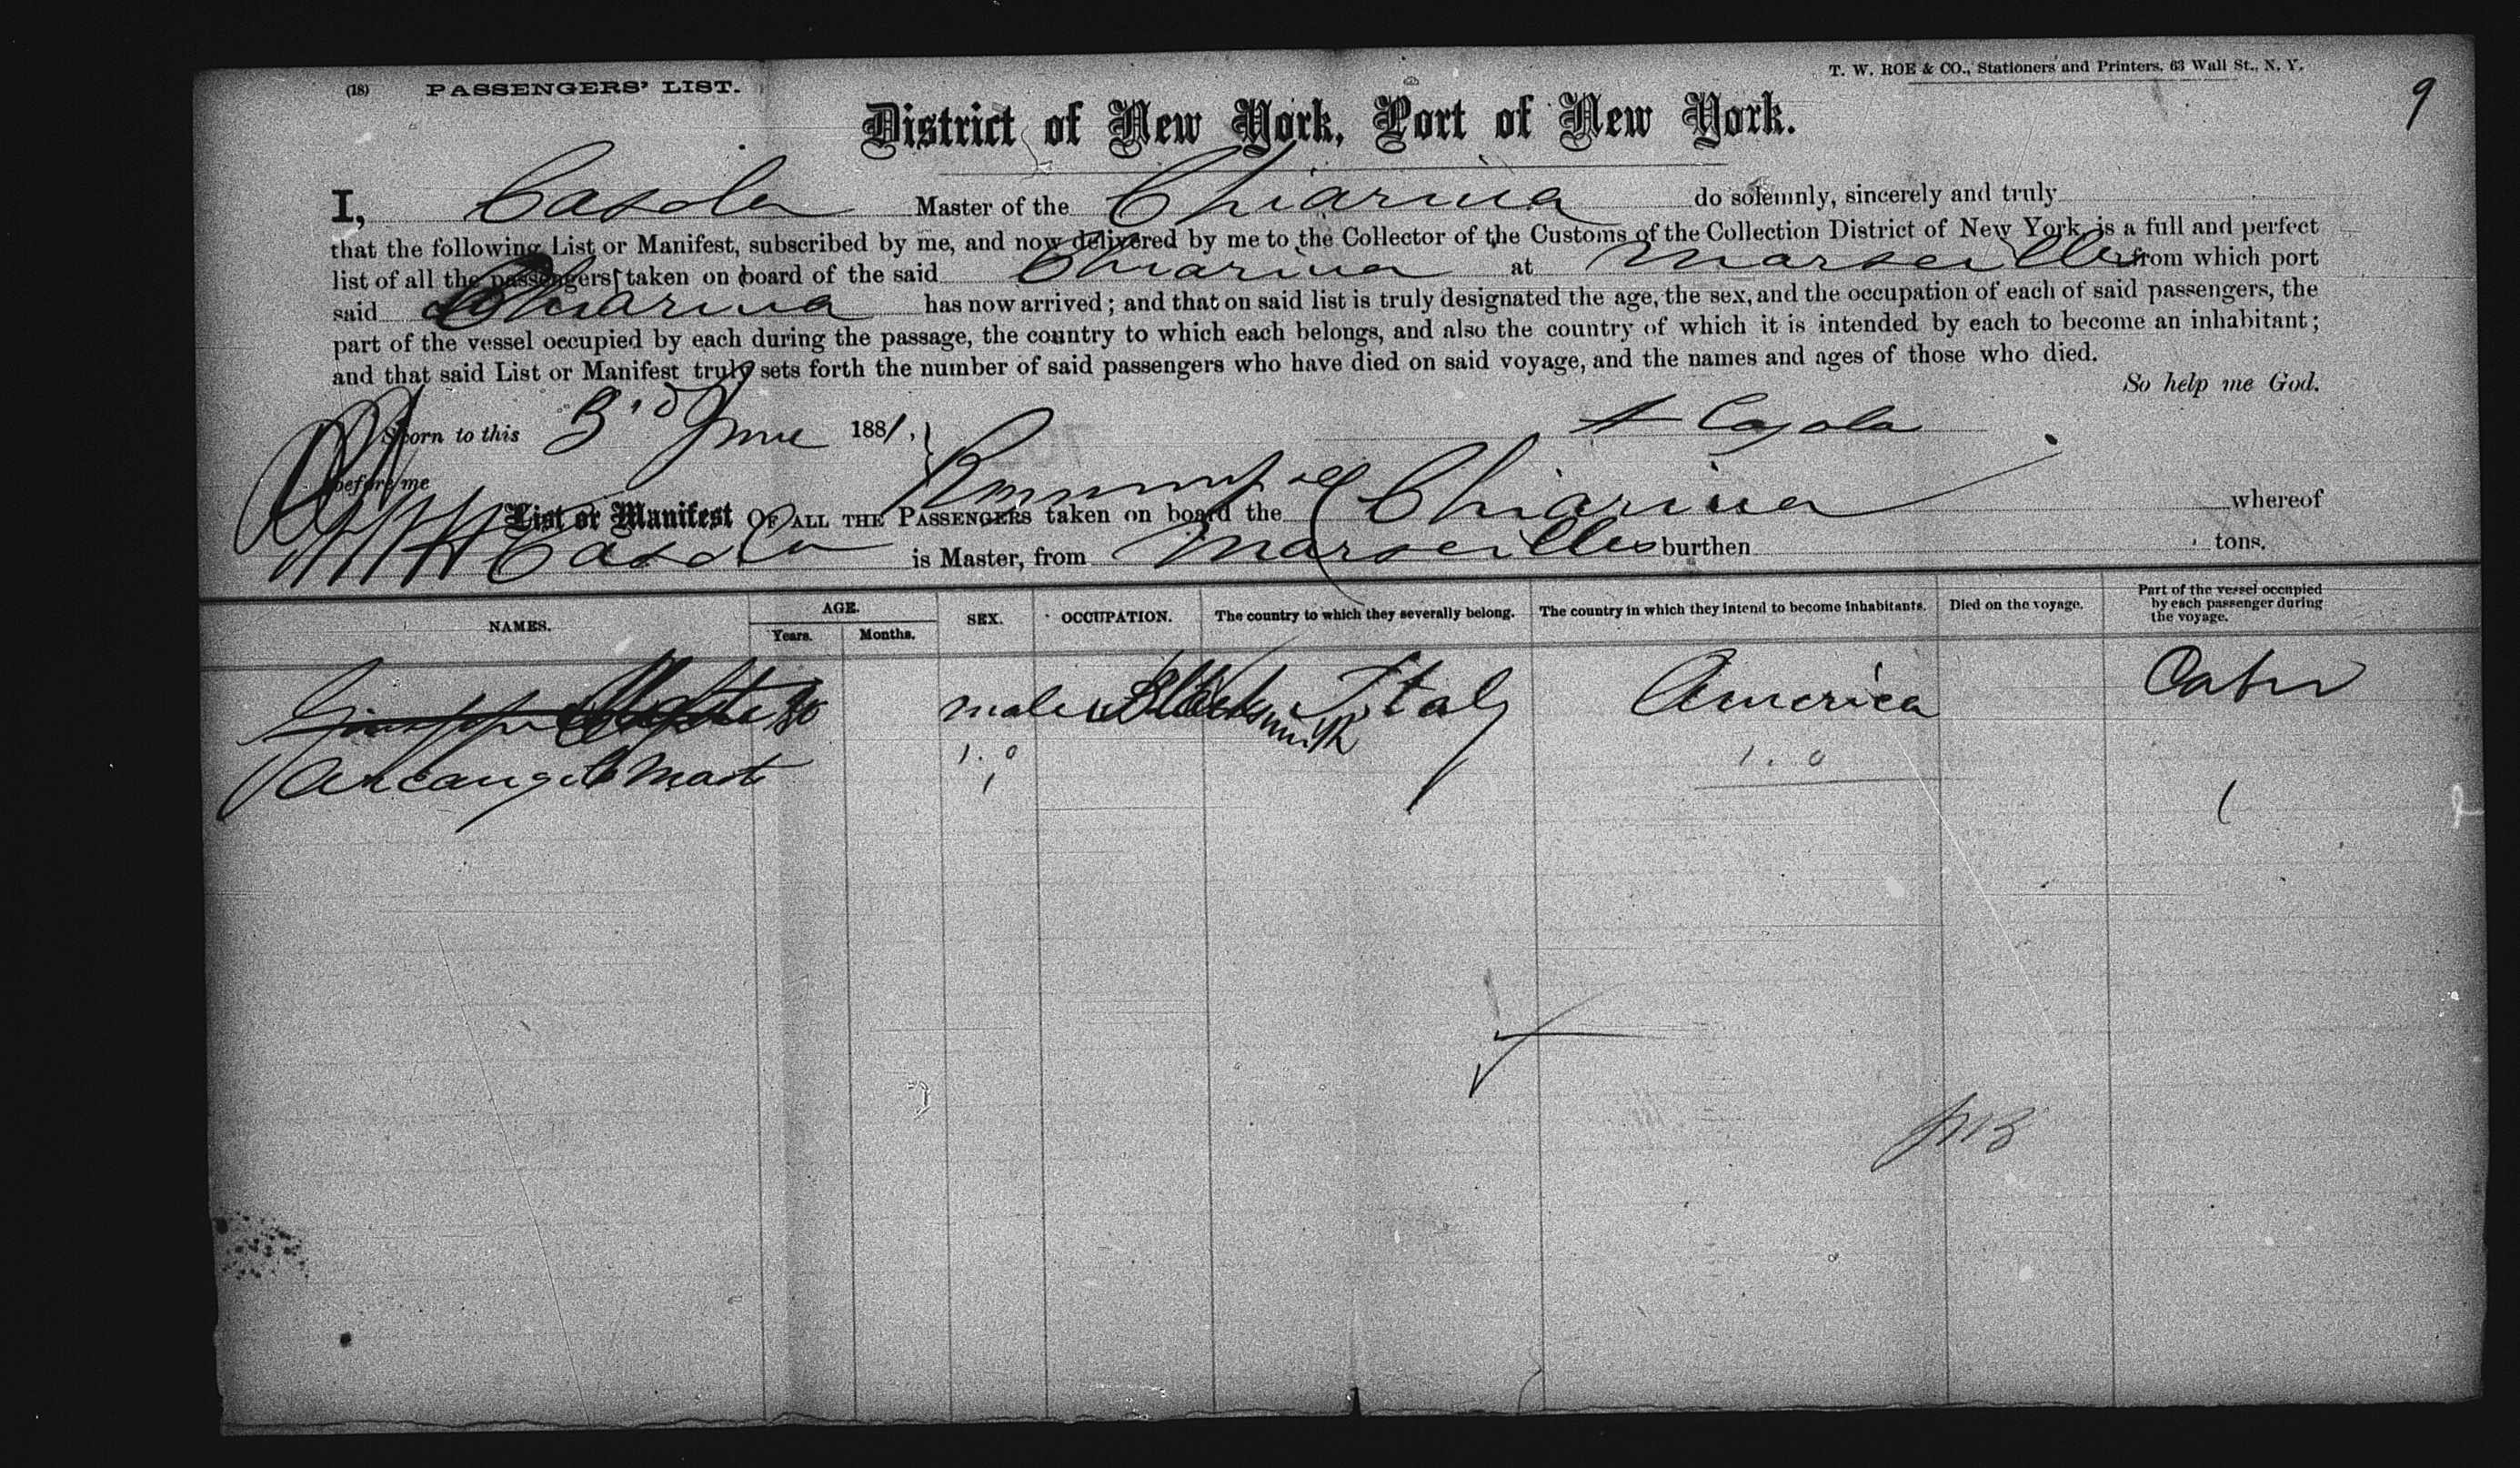 (18) PASSENGERS' LIST.
T. W. ROE & CO., Stationers and Printers, 63 Wall St., N. Y.
9
District of New York, Port of New York.
I, Casola Master of the Chiarina do solemnly, sincerely and truly
that the following List or Manifest, subscribed by me, and now delivered by me to the Collector of the Customs of the Collection District of New York, is a full and perfect
list of all the passengers taken on board of the said Chiarina at Marseilles from which port
said Chiarina has now arrived; and that on said list is truly designated the age, the sex, and the occupation of each of said passengers, the
part of the vessel occupied by each during the passage, the country to which each belongs, and also the country of which it is intended by each to become an inhabitant;
and that said List or Manifest truly sets forth the number of said passengers who have died on said voyage, and the names and ages of those who died.
So help me God.
Sworn to this 3rd June 1881, A Casola
before me
List or Manifest OF ALL THE PASSENGERS taken on board the Chiarina whereof
Casola is Master, from Marseilles burthen tons.
NAMES. AGE. Years. Months. SEX. OCCUPATION. The country to which they severally belong. The country in which they intend to become inhabitants. Died on the voyage. Part of the vessel occupied by each passenger during the voyage.
Giuseppe 30 male Blacksmith Italy America Cabin
Arcangelo
1. 0 1. 0
1